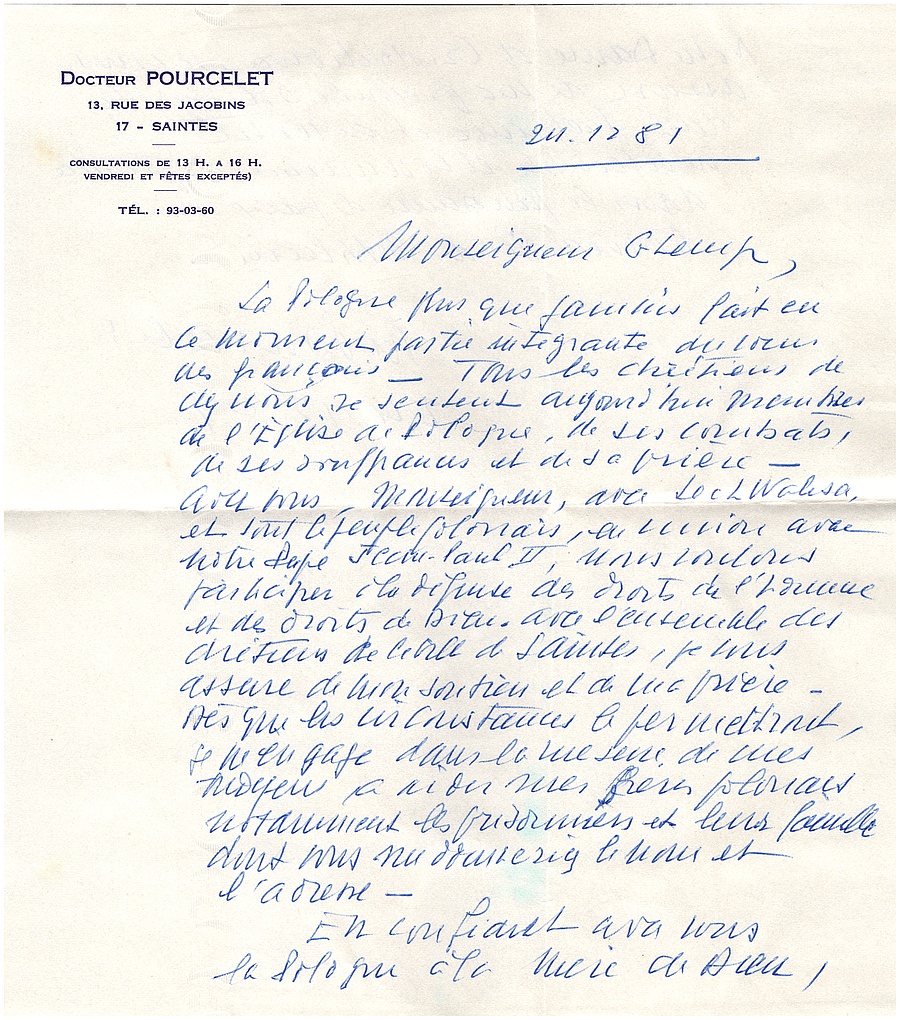 DOCTEUR POURCELET
13, RUE DES JACOBINS
17 - SAINTES
CONSULTATIONS DE 13 H. A 16 H.
VENDREDI ET FÊTES EXCEPTÉS)
TÉL. : 93-03-60
24.12 81
Monseigneur Glemp,
La Pologne plus que jamais fait en
ce moment partie intégrante du cœur
des français — Tous les chrétiens de
chez nous se sentent aujourd'hui membres
de l'Église de Pologne, de ses combats,
de ses souffrances et de sa prière —
Avec vous, Monseigneur, avec Lech Walesa,
et tout le peuple polonais, en union avec
notre Pape Jean-Paul II, nous voulons
participer à la défense des droits de l'homme
et des droits de Dieu. avec l'ensemble des
chrétiens de de Saintes, je vous
assure de mon soutien et de ma prière -
Dès que les circonstances le permettront,
je m'engage dans la mesure de mes
moyens à aider mes frères polonais
notamment les prisonniers et leur famille
dont vous me donnerez le nom et
l'adresse —
En confiant avec vous
la Pologne à la Mère de Dieu,